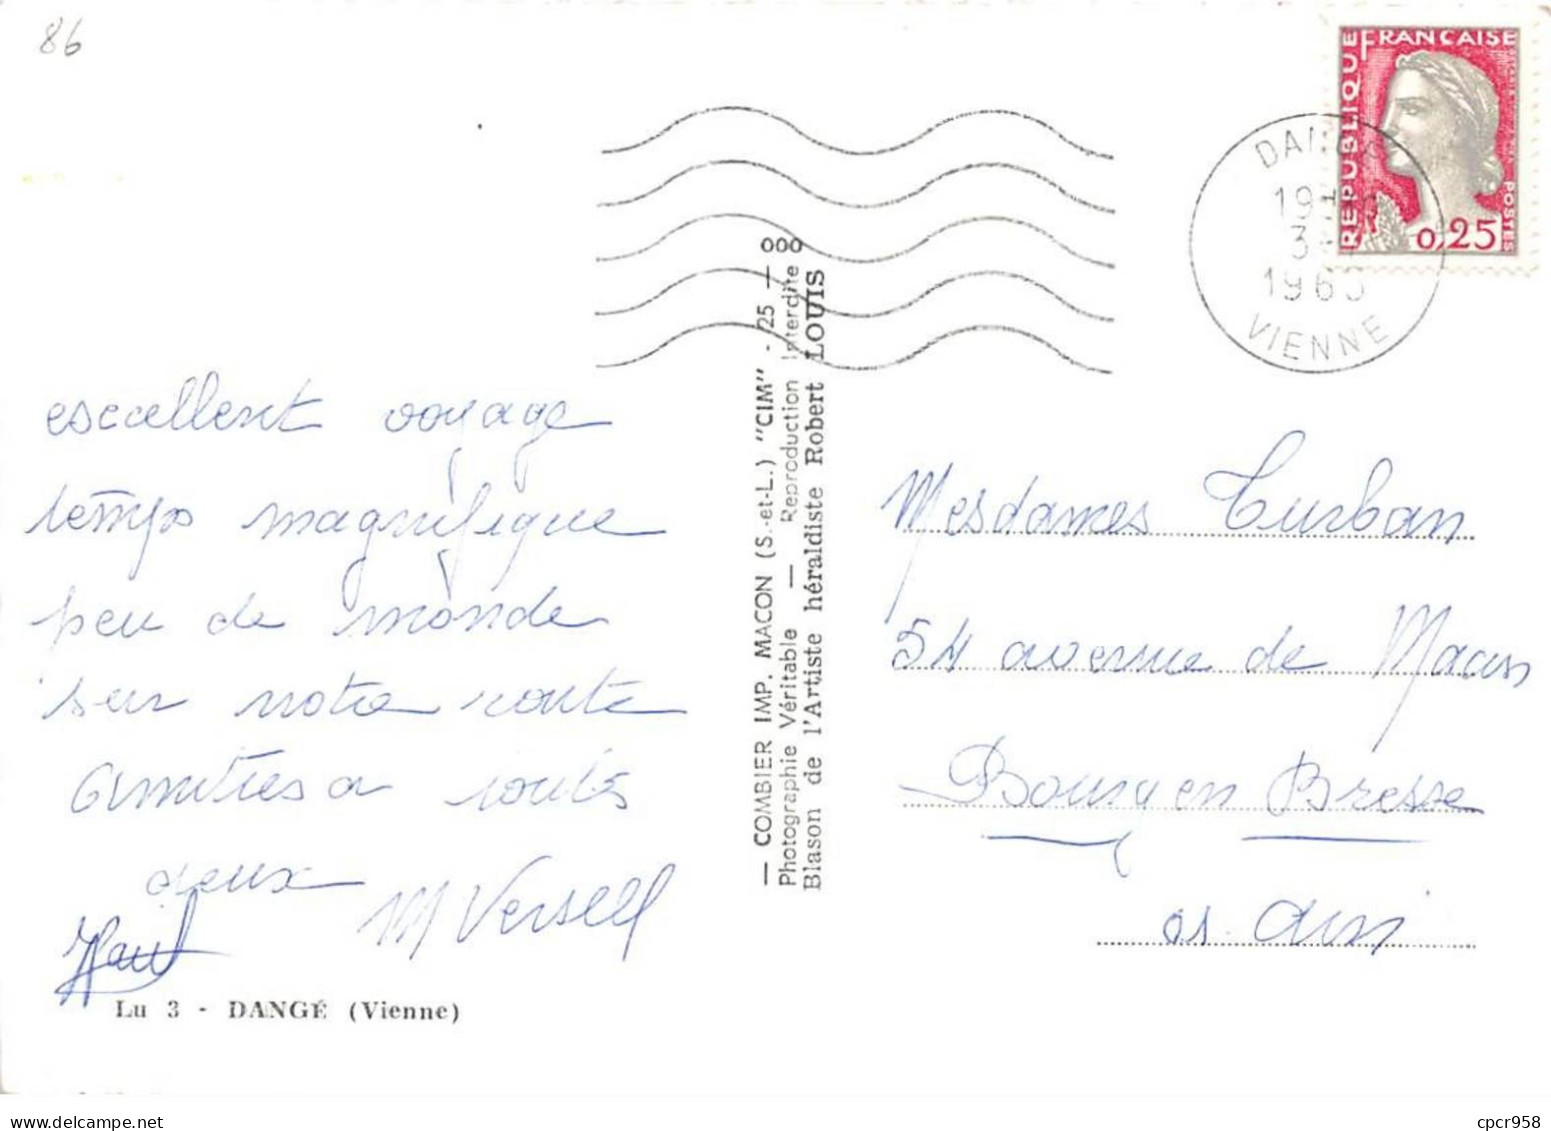 86
RÉPUBLIQUE FRANÇAISE
POSTES
0,25
DANGÉ
3
VIENNE
excellent voyage
temps magnifique
peu de monde
sur notre route
amitiés a toutes
deux
M Versell
Lu 3 - DANGÉ (Vienne)
— COMBIER IMP. MACON (S.-et-L.) "CIM" - 25 — 000
Photographie Véritable — Reproduction Interdite
Blason de l'Artiste héraldiste Robert LOUIS
Mesdames Turban
54 avenue de Macon
Bourg en Bresse
01. Ain
cpcr958